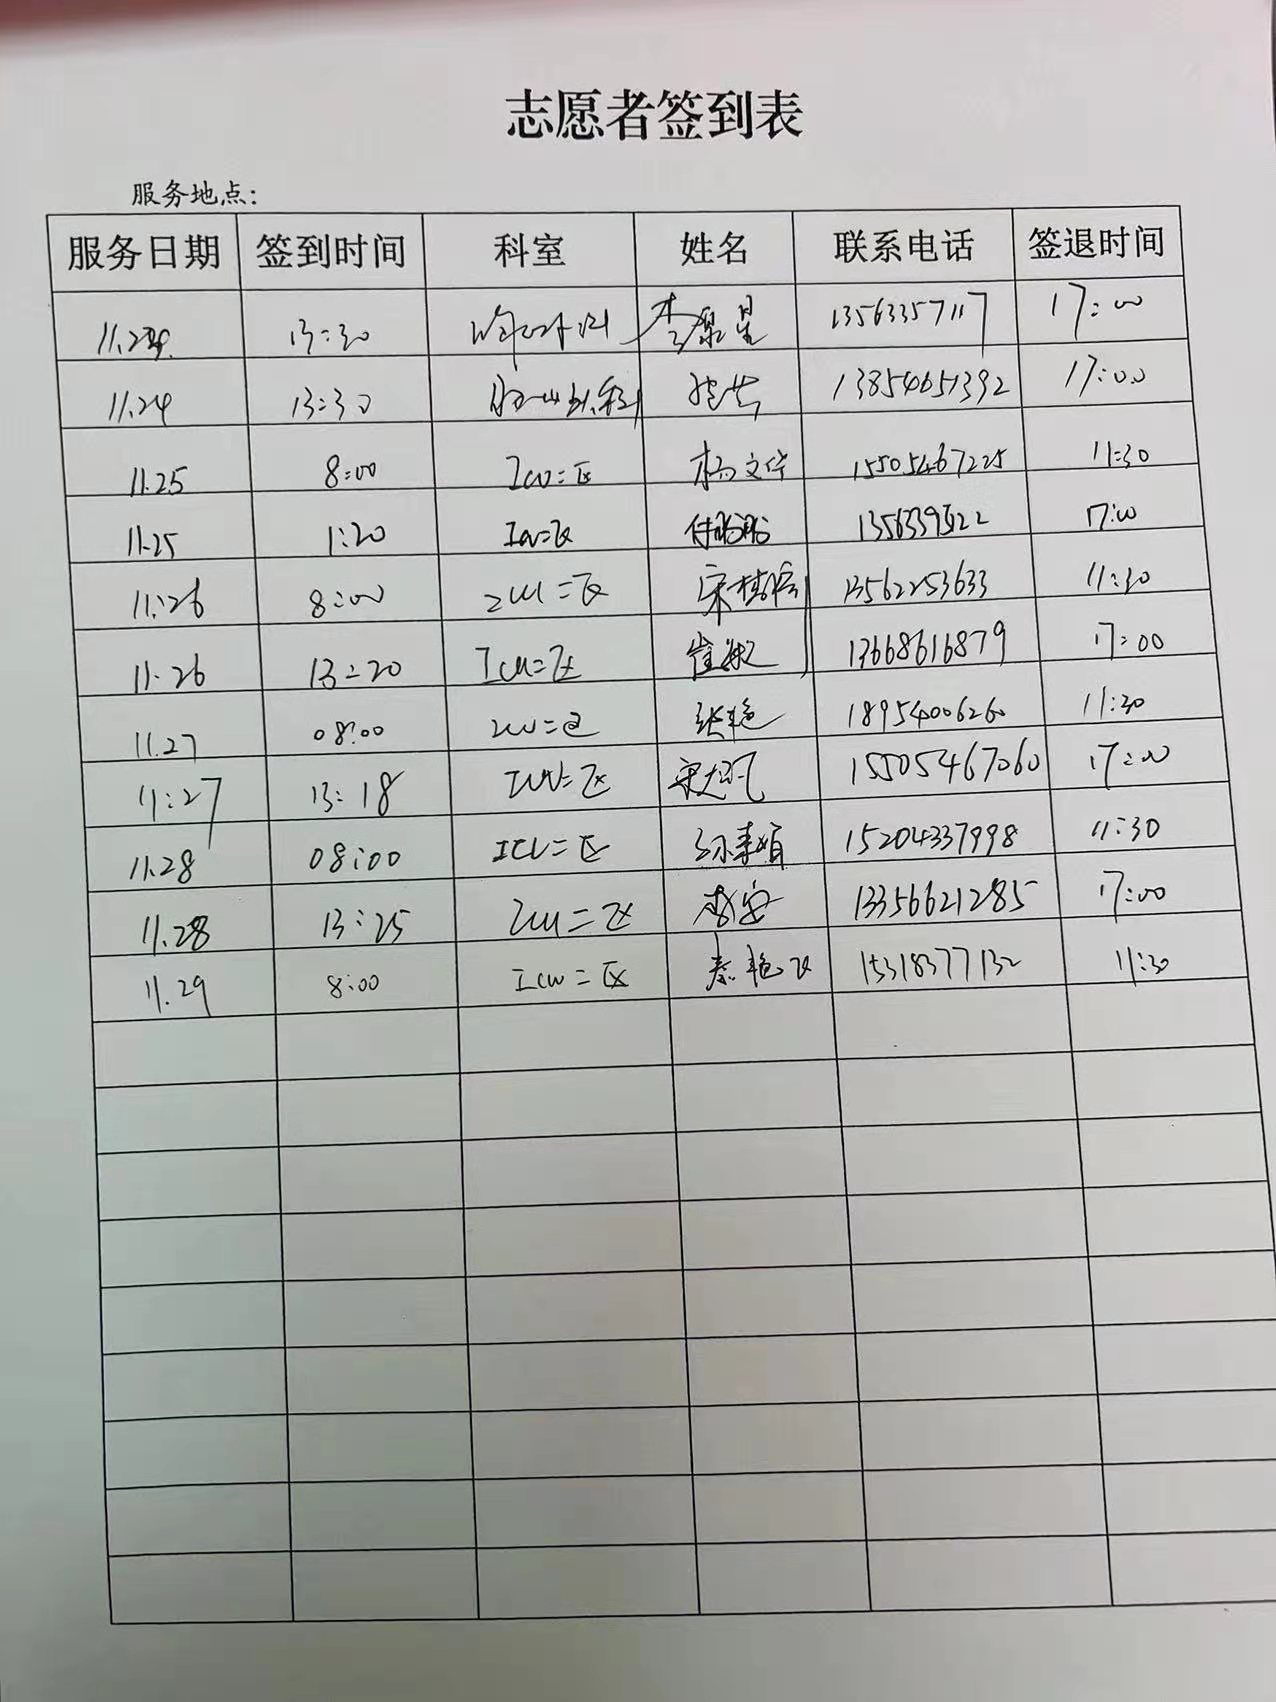 志愿者签到表
服务地点:
服务日期 签到时间 科室 姓名 联系电话 签退时间
11.24 13:30 13563357117 17:00
11.24 13:30 13854651392 17:00
11.25 8:00 ICU二区 杨文华 15505467225 11:30
11.25 1:20 ICU二区 17:00
11.26 8:00 ICU二区 13562253633 11:30
11.26 13:20 ICU二区 崔敏 13668616879 17:00
11.27 08:00 ICU二区 张艳 18954006260 11:30
11:27 13:18 ICU二区 15505467060 17:00
11.28 08:00 ICU二区 15204337998 11:30
11.28 13:25 ICU二区 李安 13356621285 17:00
11.29 8:00 ICU二区 15318377132 11:30